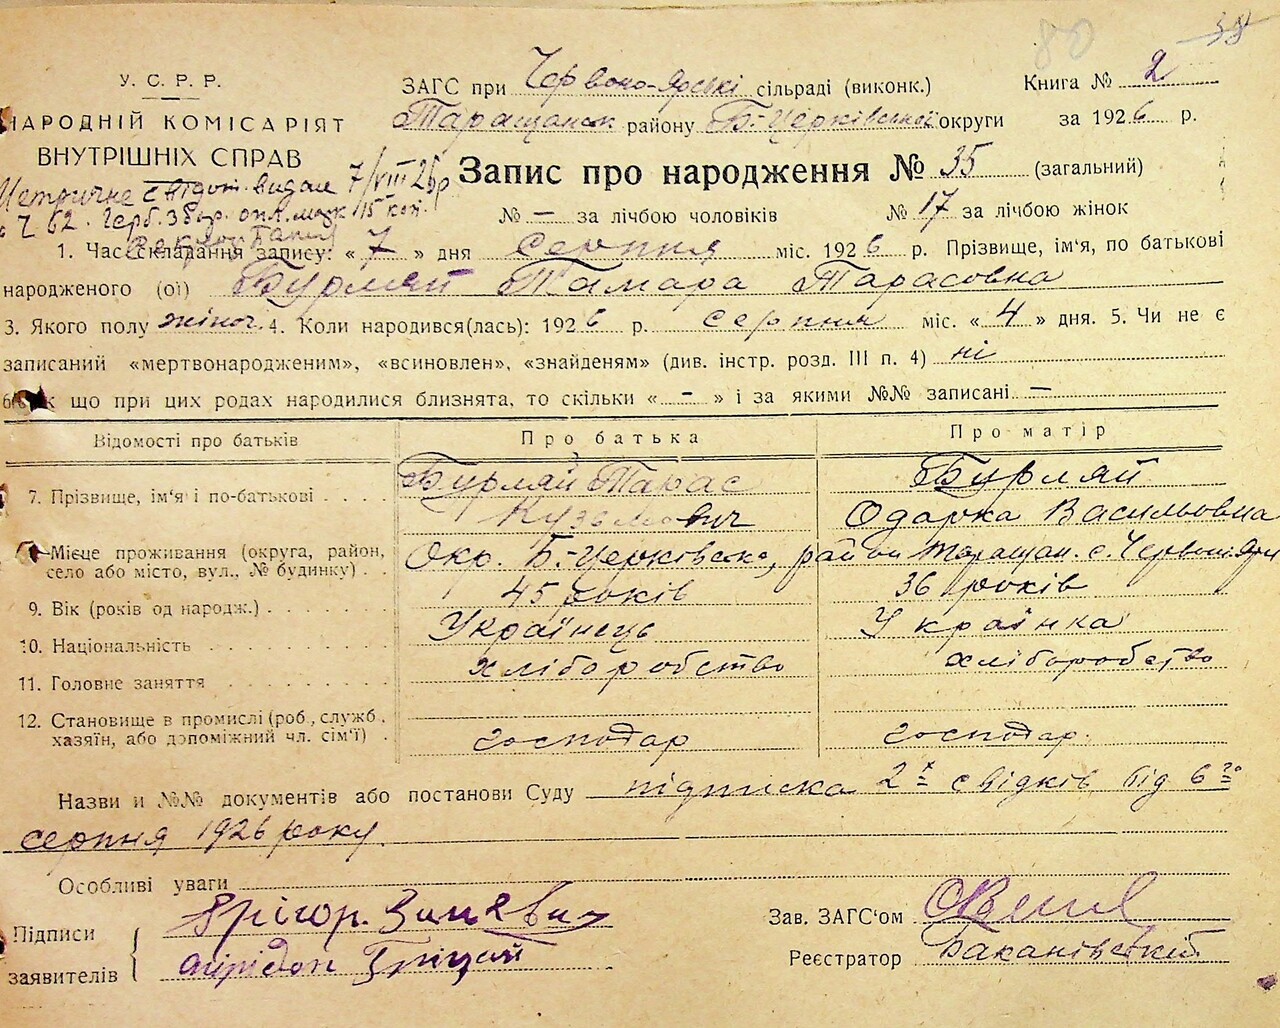 80 38
У.С.Р.Р.
НАРОДНІЙ КОМІСАРІЯТ
ВНУТРІШНІХ СПРАВ
ЗАГС при Червоно-Ярські сільраді (виконк.) Книга № 2
Таращанск району Б-Церківської округи за 1926 р.
Метричне свідот. видане 7/VIII 26р
Запис про народження № 35 (загальний)
№ — за лічбою чоловіків № 17 за лічбою жінок
1. Час складання запису: « 7 » дня серпня міс. 1926 р. Прізвище, ім'я, по батькові
народженого (ої) Бурляй Тамара Тарасовна
3. Якого полу жіноч. 4. Коли народився(лась): 1926 р. серпня міс. « 4 » дня. 5. Чи не є
записаний «мертвонародженим», «всиновлен», «знайденям» (див. інстр. розд. III п. 4) ні
6. що при цих родах народилися близнята, то скільки « - » і за якими №№ записані —
Відомості про батьків Про батька Про матір
7. Прізвище, ім'я і по-батькові . . . . Бурляй Тарас Кузьмович Бурляй Одарка Васильовна
Місце проживання (округа, район,
село або місто, вул., № будинку) . . Окр. Б.-Церківська, район Таращан. с. Червоний Яр
9. Вік (років од народж.) 45 років 36 років
10. Національність Українець Українка
11. Головне заняття хліборобство хліборобство
12. Становище в промислі (роб., служб.
хазяїн, або допоміжний чл. сім'ї) . господар господар
Назви и №№ документів або постанови Суду підписка 2х свідків від 6го
серпня 1926 року.
Особливі уваги
Підписи
заявителів
Грігор.
Спірідон Гріцай
Зав. ЗАГС'ом
Реєстратор Бакановський